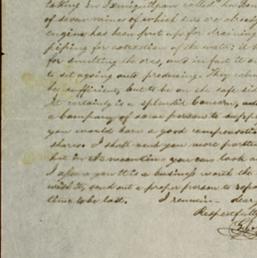 taking in
of seven mines of which six are already
engine has been put up for draining
piping for extraction of the water: it
for smelting the ores, and in fact it
to set agoing and producing. They
be sufficient, but to be on the safe side
It certainly is a splendid Concern, and
a Company of some person to
you would have a good compensation
shares. I shall send you more
but in the meantime you can look
I assure you it is a business worth the
with it, send out a proper person to
time to be lost. I remain dear
Respectfully